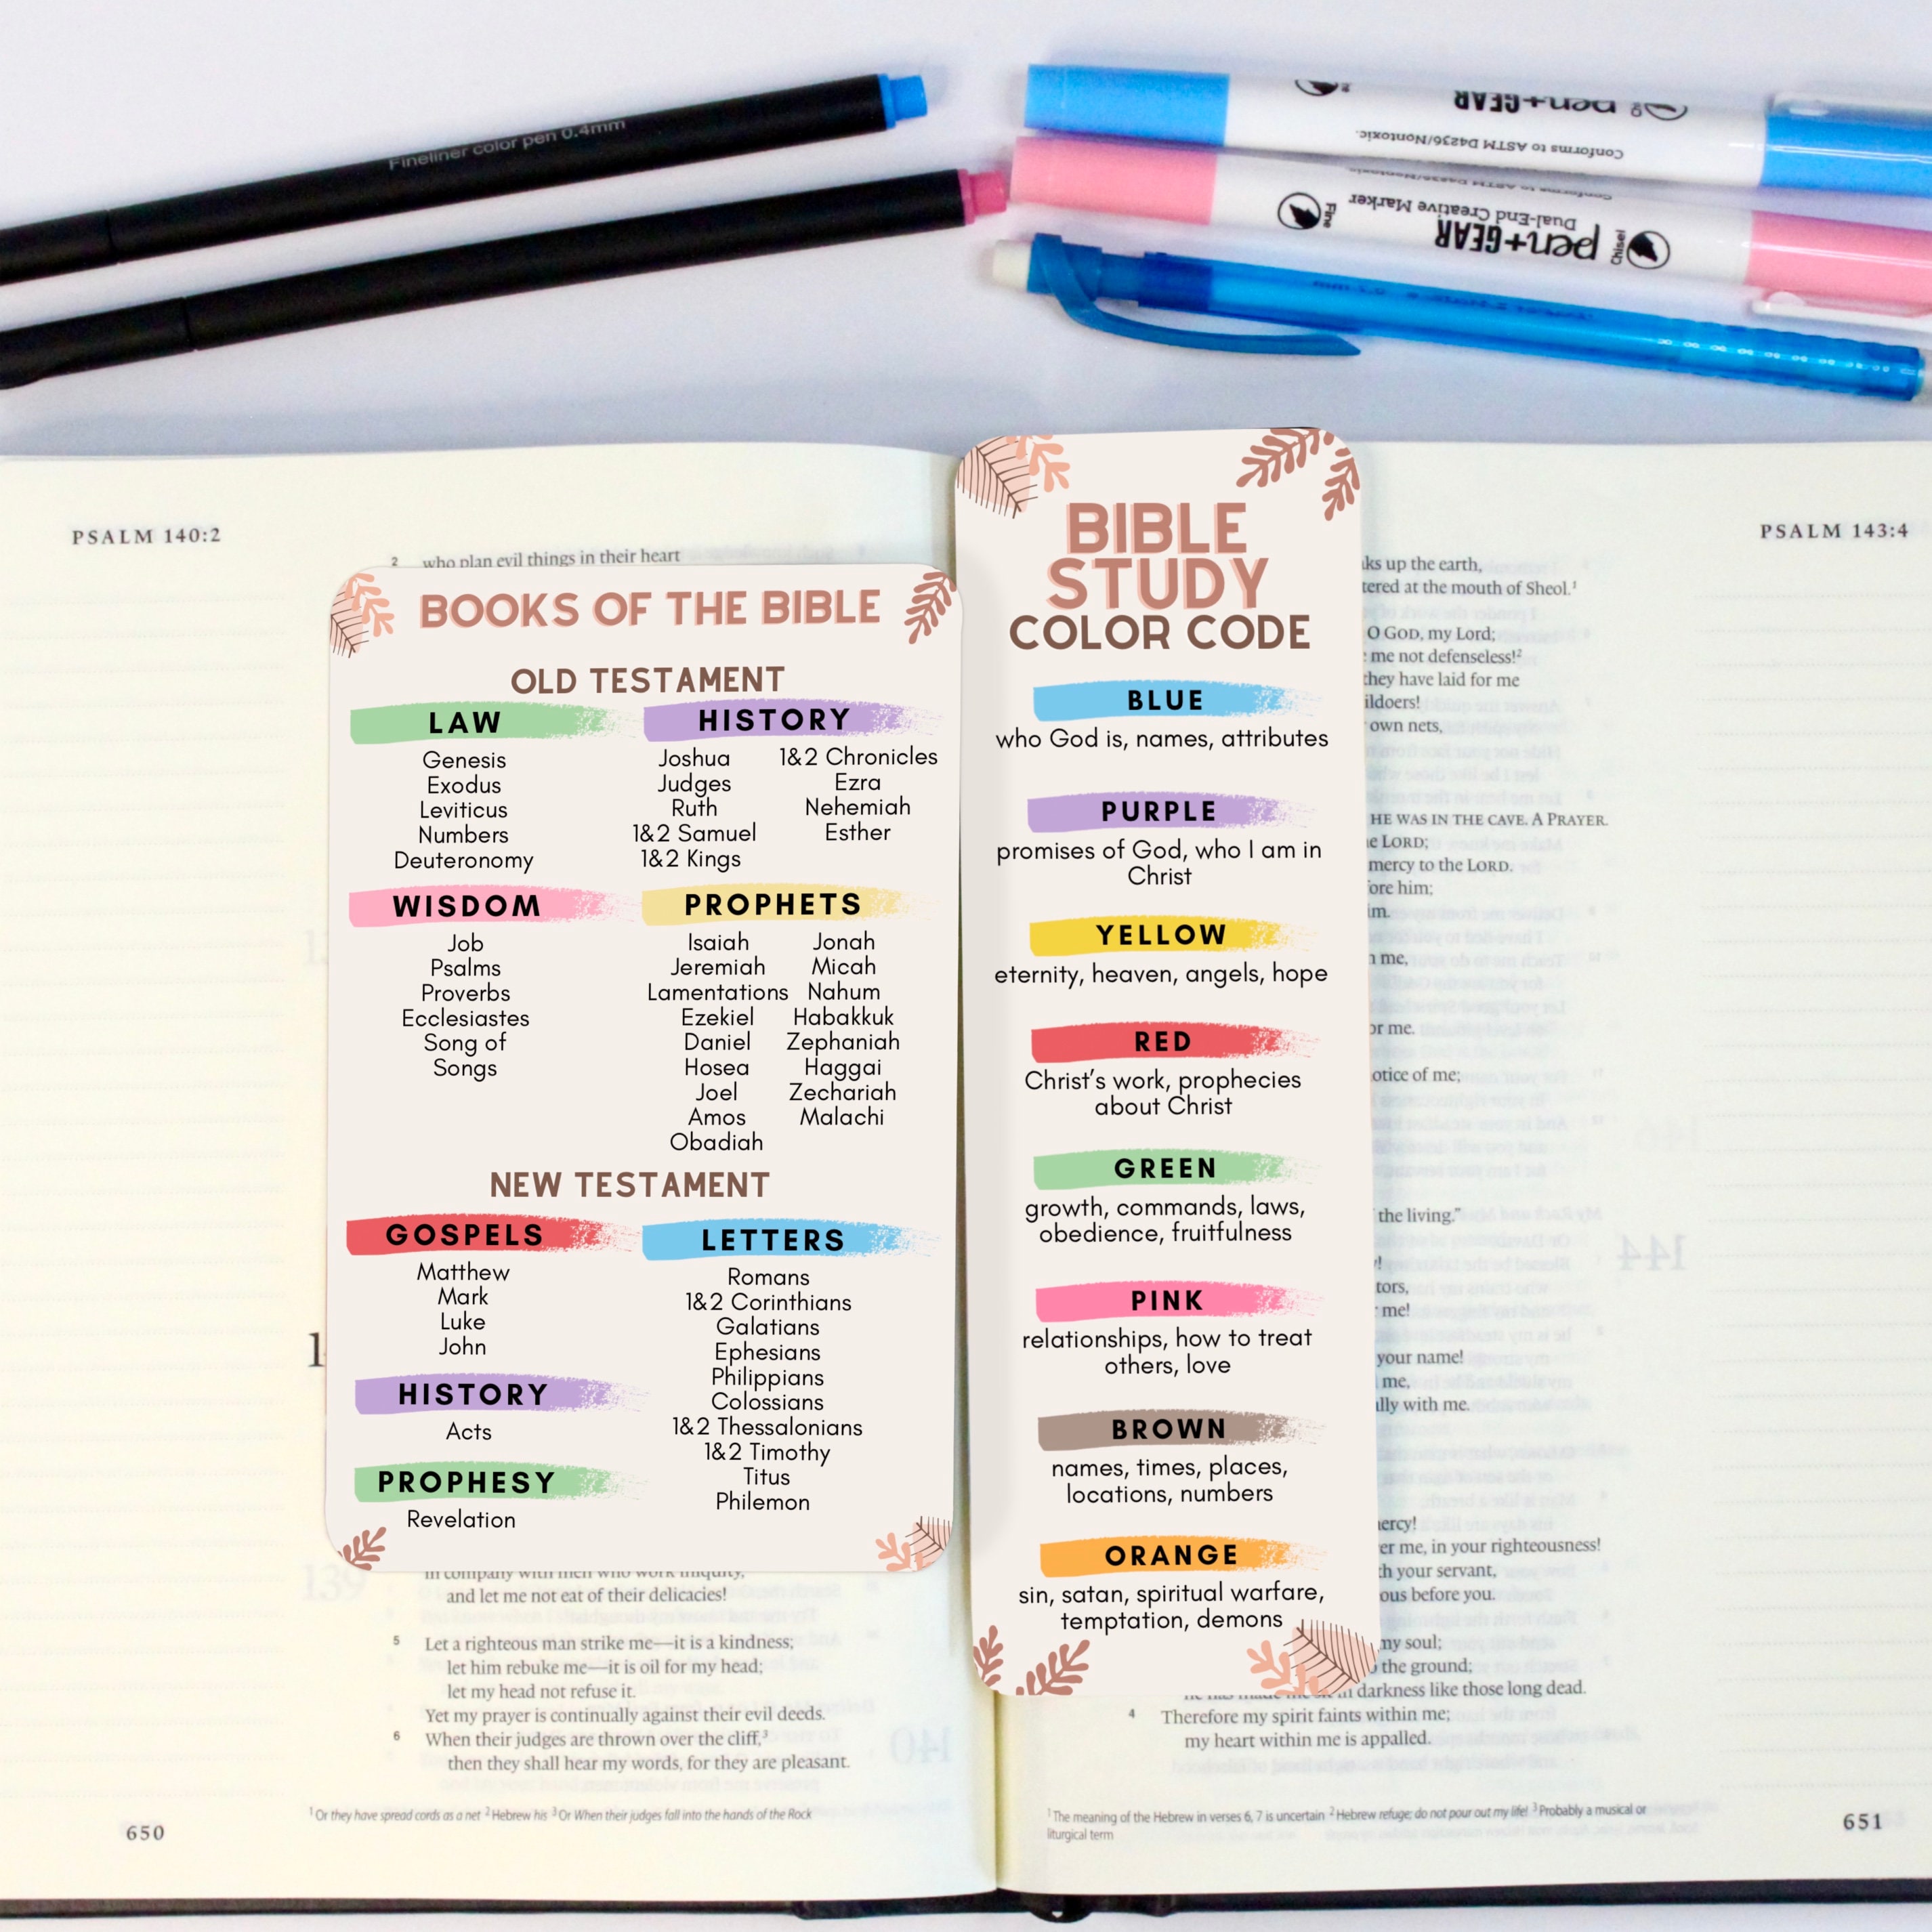 Fineliner color pen 0.4mm
pen+GEAR
Conforms to ASTM D4236/Nontoxic.
Dual-End Creative Marker
Fine
pen+GEAR
Chisel
PSALM 140:2
2 who plan evil things in their heart
BOOKS OF THE BIBLE
OLD TESTAMENT
LAW
Genesis
Exodus
Leviticus
Numbers
Deuteronomy
HISTORY
Joshua
Judges
Ruth
1&2 Samuel
1&2 Kings
1&2 Chronicles
Ezra
Nehemiah
Esther
WISDOM
Job
Psalms
Proverbs
Ecclesiastes
Song of
Songs
PROPHETS
Isaiah
Jeremiah
Lamentations
Ezekiel
Daniel
Hosea
Joel
Amos
Obadiah
Jonah
Micah
Nahum
Habakkuk
Zephaniah
Haggai
Zechariah
Malachi
NEW TESTAMENT
GOSPELS
Matthew
Mark
Luke
John
HISTORY
Acts
PROPHESY
Revelation
LETTERS
Romans
1&2 Corinthians
Galatians
Ephesians
Philippians
Colossians
1&2 Thessalonians
1&2 Timothy
Titus
Philemon
in company with men who work iniquity,
and let me not eat of their delicacies!
5 Let a righteous man strike me—it is a kindness;
let him rebuke me—it is oil for my head;
let my head not refuse it.
Yet my prayer is continually against their evil deeds.
6 When their judges are thrown over the cliff,3
then they shall hear my words, for they are pleasant.
1 Or they have spread cords as a net 2 Hebrew his 3 Or When their judges fall into the hands of the Rock
650
BIBLE
STUDY
COLOR CODE
BLUE
who God is, names, attributes
PURPLE
promises of God, who I am in
Christ
YELLOW
eternity, heaven, angels, hope
RED
Christ's work, prophecies
about Christ
GREEN
growth, commands, laws,
obedience, fruitfulness
PINK
relationships, how to treat
others, love
BROWN
names, times, places,
locations, numbers
ORANGE
sin, satan, spiritual warfare,
temptation, demons
PSALM 143:4
up the earth,
at the mouth of Sheol.1
O GOD, my Lord;
me not defenseless!2
they have laid for me
own nets,
HE WAS IN THE CAVE. A PRAYER.
LORD;
mercy to the LORD.
him;
me,
or me.
notice of me;
the living."
me!
your name!
me,
with me.
me, in your righteousness!
your servant,
before you.
my soul;
the ground;
in darkness like those long dead.
4 Therefore my spirit faints within me;
my heart within me is appalled.
1 The meaning of the Hebrew in verses 6, 7 is uncertain 2 Hebrew refuge; do not pour out my life! 3 Probably a musical or
liturgical term
651
144
139
140